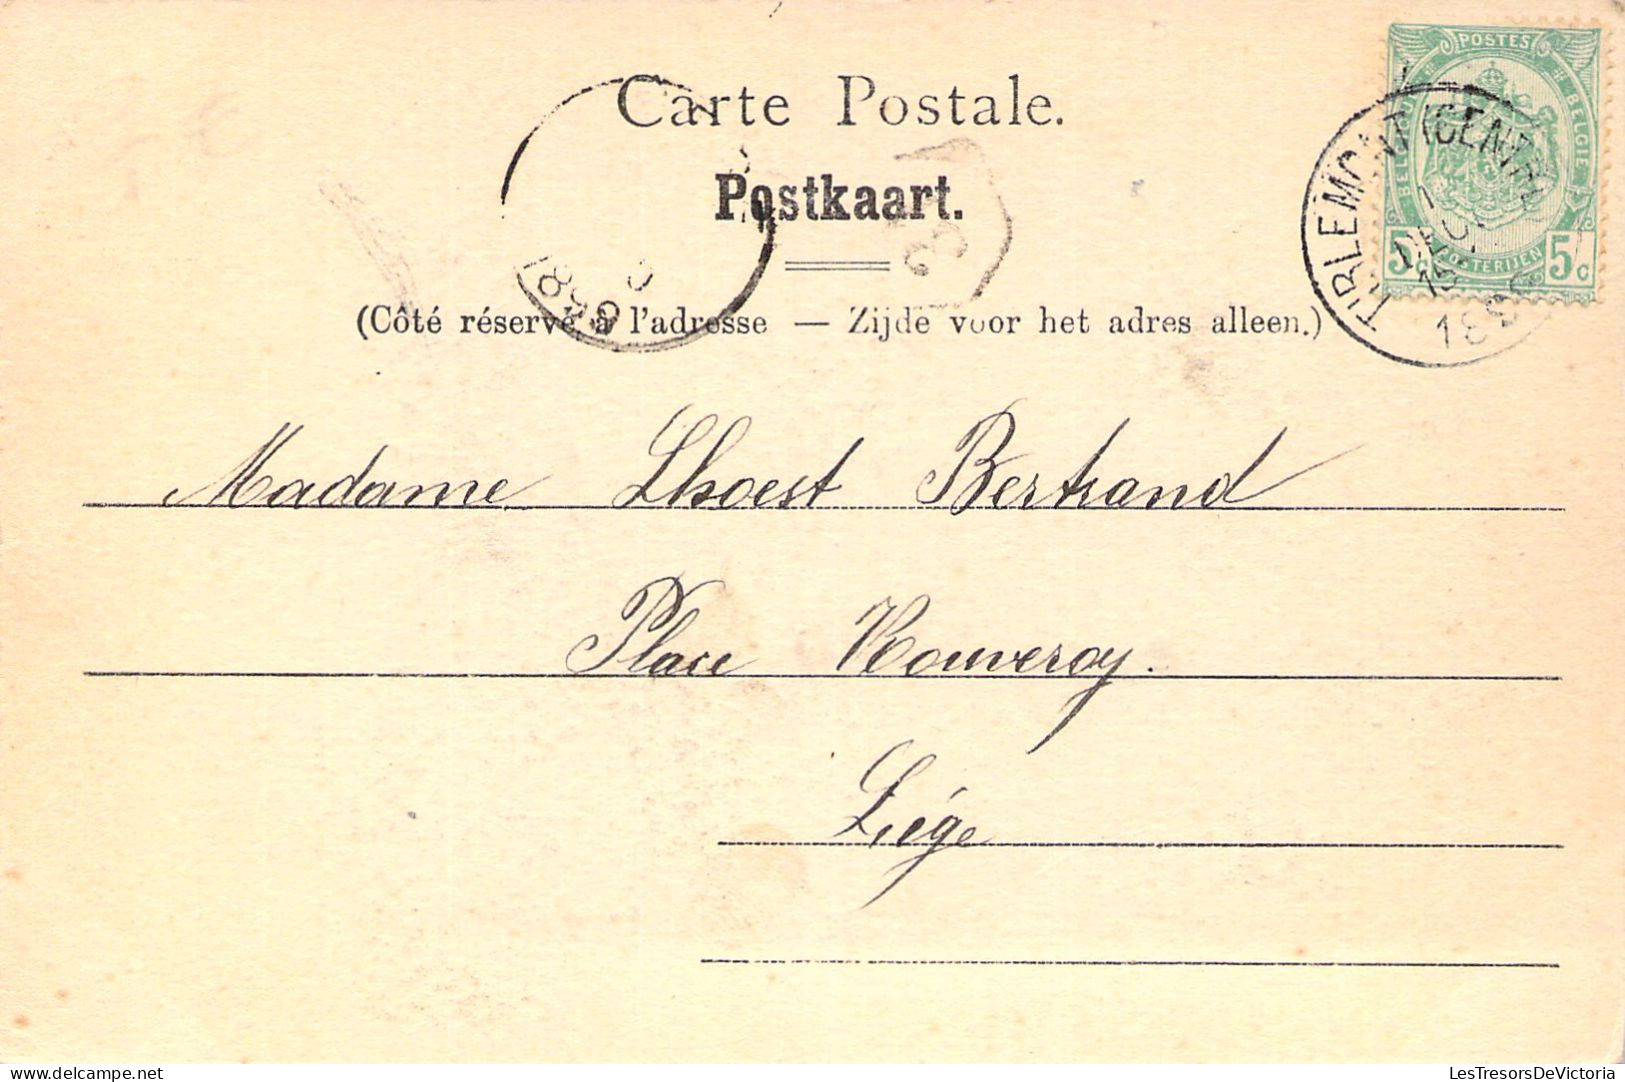 Carte Postale.
Postkaart.
(Côté réservé à l'adresse — Zijde voor het adres alleen.)
POSTES
BELGIQUE BELGIE
5c POSTERIJEN 5c
TIRLEMONT (CENTRAL)
DEC
1899
1899
Madame Lhoest Bertrand
Place Rouveroy.
Liége
LesTresorsDeVictoria